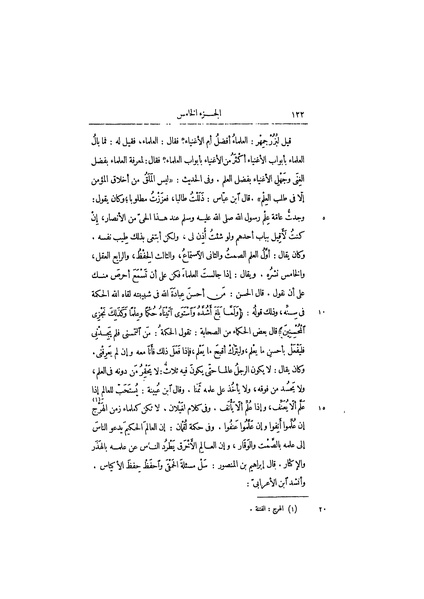 ١٢٢ الجزء الخامس
قيل لبُزُرْجِمِهْر : العلماءُ أفضلُ أم الأغنياء؟ فقال : العلماء، فقيل له : فما بالُ
العلماء بأبواب الأغنياء أكثَرُ من الأغنياء بأبواب العلماء؟ فقال: لمعرفة العلماء بفضل
الغِنَى وجَهْلِ الأغنياء بفضل العلم . وفى الحديث : «ليس المَلَقُ من أخلاق المؤمن
إلّا فى طلب العلم» . قال ابن عبّاس : ذَلَلْتُ طالبا، فعَزَزْتُ مطلوبا؛ وكان يقول:
٥ وجدتُ عامّةَ علم رسول الله صلى الله عليه وسلم عند هذا الحىّ من الأنصار، إنْ
كنتُ لَأَقِيلُ بباب أحدهم ولو شئتُ أُذِنَ لى ، ولكن أبتغى بذلك طِيبَ نفسه .
وكان يقال : أوّلُ العلم الصمتُ والثانى الاستماعُ، والثالث الحِفْظُ، والرابع العقل،
والخامس نَشْرُه . ويقال : إذا جالستَ العلماءَ فكن على أن تَسْمَعَ أحرصَ منك
على أن تقول . قال الحسن : مَن أحسنَ عِبادةَ الله فى شبيبته لقّاه الله الحكمةَ
١٠ فى سِنّه، وذلك قولُه : (وَلَمَّا بَلَغَ أَشُدَّهُ وَاسْتَوَى آتَيْنَاهُ حُكْمًا وَعِلْمًا وَكَذَلِكَ نَجْزِى
الْمُحْسِنِينَ) قال بعض الحكماء من الصحابة : تقول الحكمةُ : مَن التمسنى فلم يَجِدْنى
فليَفْعَلْ بأحسنِ ما يعلم، وليترُكْ أقبحَ ما يعلم، فإذا فَعَل ذلك فأنا معه وإن لم يعرفْنى.
وكان يقال : لا يكون الرجلُ عالما حتّى يكونَ فيه ثلاثٌ : لا يَحْقِرُ مَن دونَه فى العلم،
ولا يَحسُد مَن فوقَه، ولا يأخُذ على علمه ثَمنا . وقال ابن عُيينة : يُستَحَبّ للعالم إذا
١٥ عَلَّم ألّا يُعنِّف، وإذا عُلِّم ألّا يأنَف . وفى كلام لغَيْلان . لا تكن كعلماء زمن الهَرْج(١)
إن عُلِّموا أَنِفوا وإن عَلَّموا عنَّفوا . وفى حكمة لُقْمان : إن العالم الحكيمَ يدعو الناسَ
إلى علمه بالصَّمْت والوَقار، وإن العالم الأخرَقَ يَطْرُد الناسَ عن علمه بالهَذَر
والإكثار. قال إبراهيم بن المنصور : سَلْ مسئلةَ الحَمْقَى وآحفَظْ حِفظَ الأكياس .
وأنشد ابن الأعرابىّ :
٢٠ (١) الهرج : الفتنة .